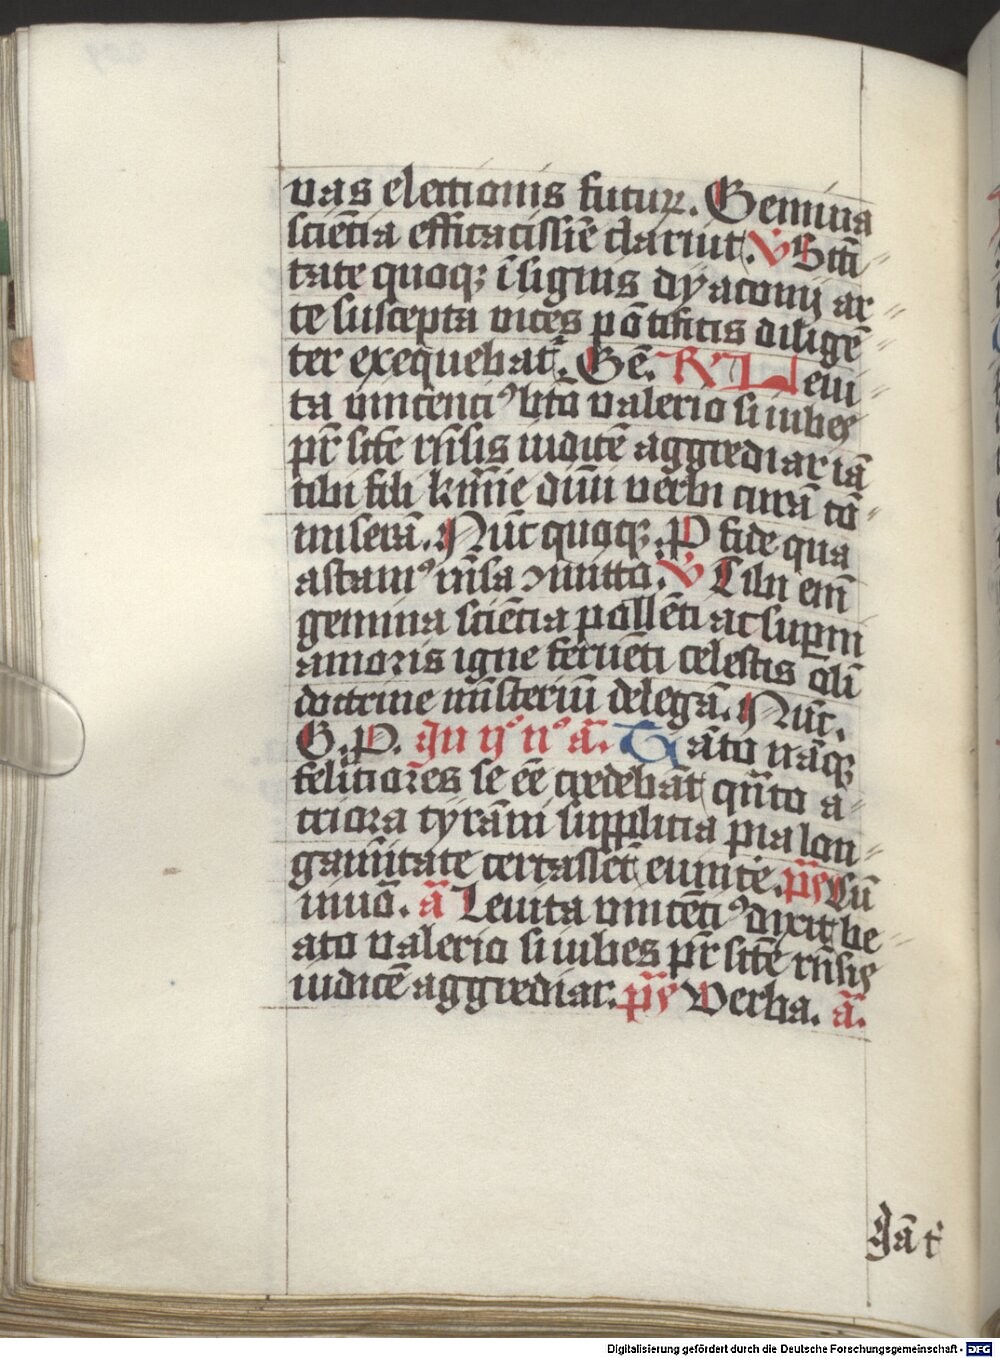 uas electionis futurꝝ. Gemina
sciētia efficacissīe claruit. V Scti
tate quoqꝫ īsignis dyaconij ar
te suscepta uices pōtificis diligē
ter exequebat᷑. Gē. R Leui
ta uincenciꝰ bt̄o ualerio si iubes
pr̄ sc̄e rn̄sis iudicē aggrediar iā
tibi fili kr̄me diuini uerbi curā cō
miserā. Nūc quoqꝫ. P fide qua
astamꝰ rn̄sa ꝯmitto. V Tibi em̄
gemina sciētia pollēti ac supm̄
amoris igne feruēti celestis olī
doctrine mīsteriū delegā. Nūc.
G. P. Jn ijº nº ā. Tāto nāqꝫ
feliciores se ēe credebāt qn̄to a
triora tyrāni supplicia pia lon
ganītate certassēt euincē. p̄s Cū
inuo. ā Leuita uincētiꝰ dixit be
ato ualerio si iubes pr̄ sc̄e rn̄sis
iudicē aggrediar. p̄s Verba. ā.
Jā t᷑
Digitalisierung gefördert durch die Deutsche Forschungsgemeinschaft - DFG